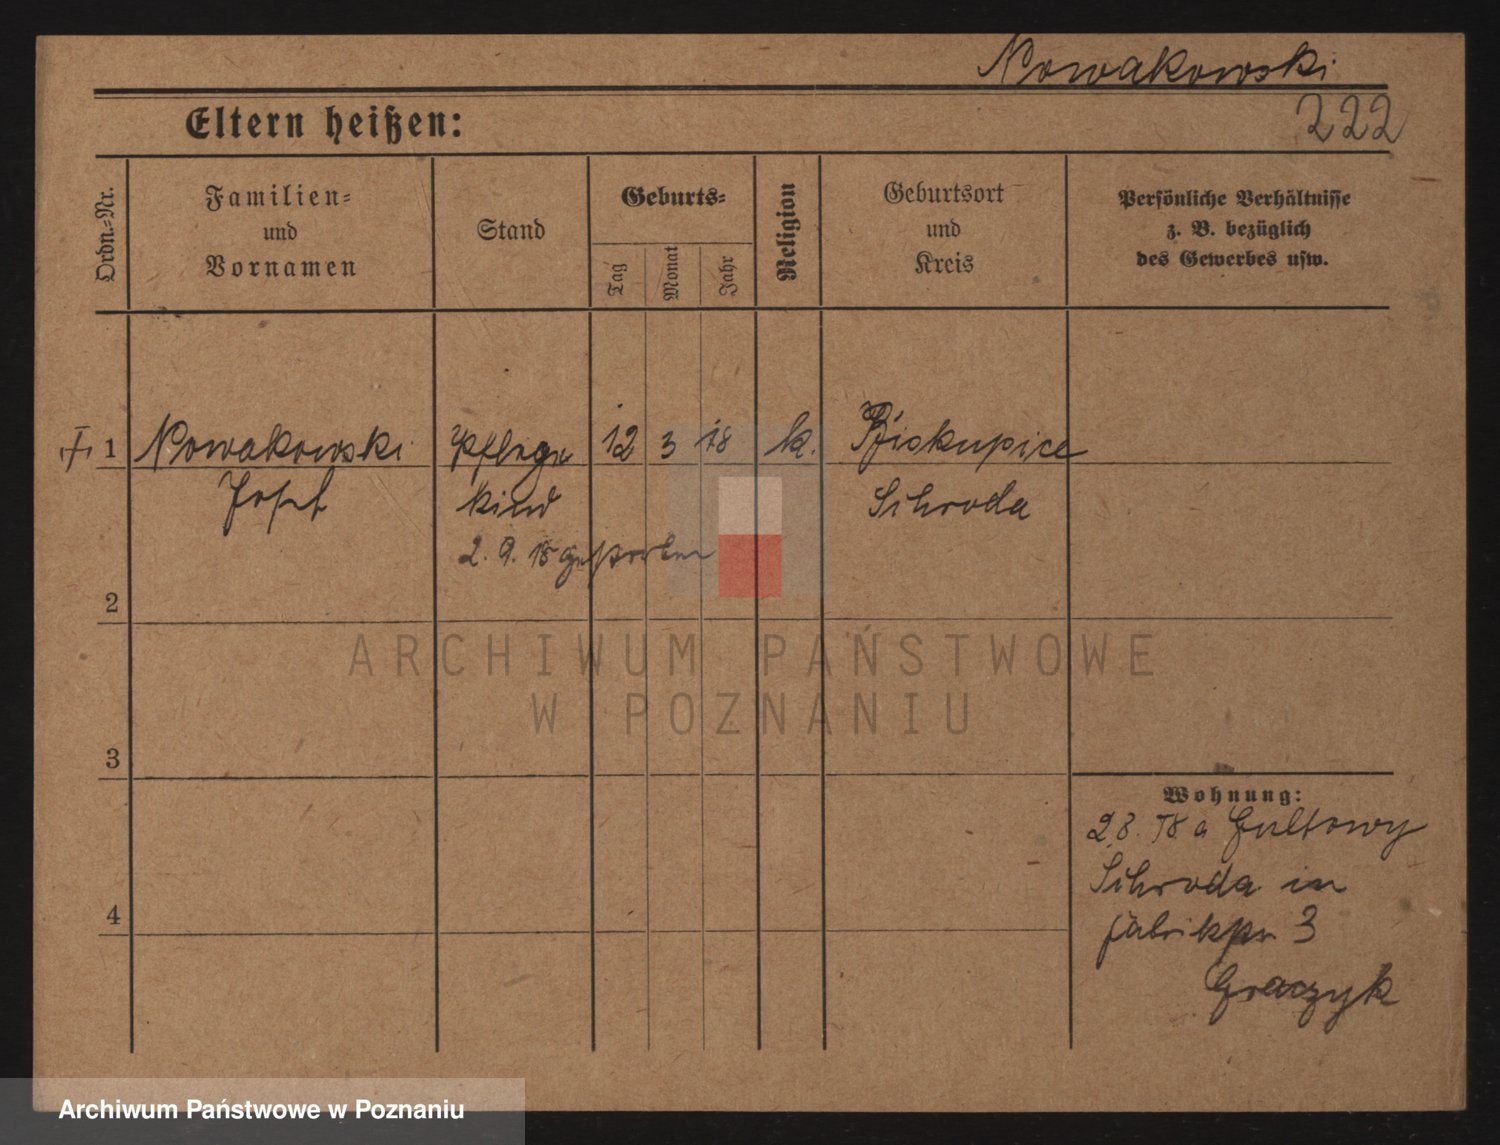 Nowakowski
222
Eltern heißen:
Ordn.=Nr.
Familien=
und
Vornamen
Stand
Geburts=
Tag
Monat
Jahr
Religion
Geburtsort
und
Kreis
Persönliche Verhältnisse
z. B. bezüglich
des Gewerbes usw.
1 Nowakowski Pflege 12 3 18 k. Biskupice
Josef kind Schroda
2. 9. 18 gestorben
2
ARCHIWUM PAŃSTWOWE
W POZNANIU
3
Wohnung:
2 8. 18 a Gultowy
Schroda in
Fabrikstr 3
Graczyk
4
Archiwum Państwowe w Poznaniu